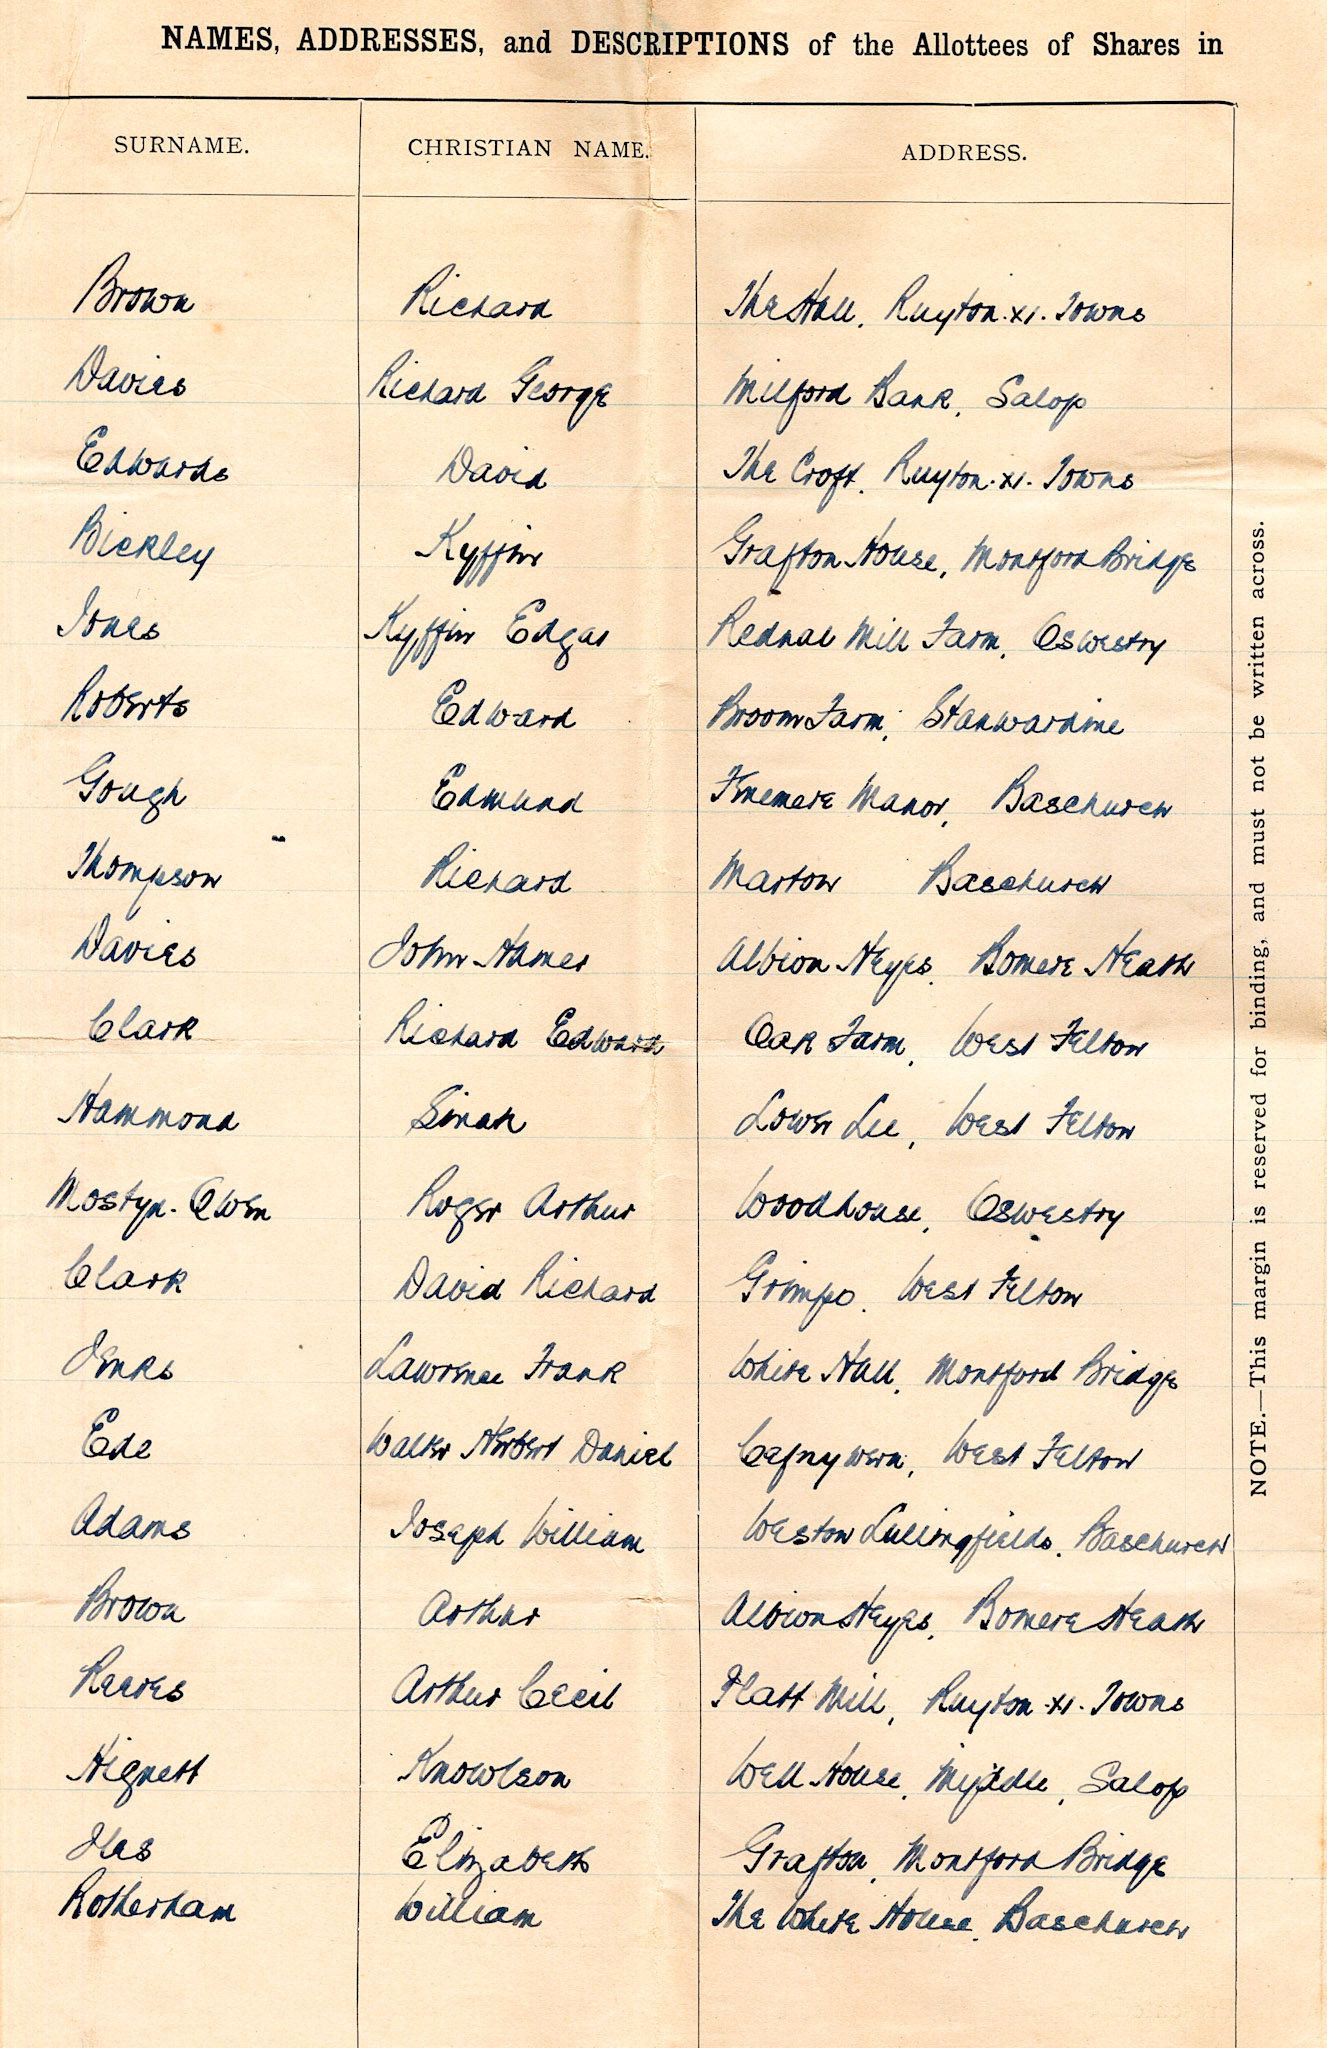 NAMES, ADDRESSES, and DESCRIPTIONS of the Allottees of Shares in
SURNAME. CHRISTIAN NAME. ADDRESS.
Brown Richard The Hall, Ruyton. XI. Towns
Davies Richard George Milford Bank, Salop
Edwards David The Croft, Ruyton. XI. Towns
Bickley Kyffin Grafton House, Montford Bridge
Jones Kyffin Edgar Rednal Mill Farm, Oswestry
Roberts Edward Broom Farm, Stanwardine
Gough Edmund Fenemere Manor, Baschurch
Thompson Richard Marton Baschurch
Davies John Hamer Albion Heyes, Bomere Heath
Clark Richard Edward Oak Farm, West Felton
Hammond Sinah Lower Lee, West Felton
Mostyn-Owen Roger Arthur Woodhouse, Oswestry
Clark David Richard Grimpo, West Felton
Jenks Lawrence Frank White Hall, Montford Bridge
Ede Walter Herbert Daniel Cefnywern, West Felton
Adams Joseph William Weston Lullingfields, Baschurch
Brown Arthur Albion Heyes, Bomere Heath
Reeves Arthur Cecil Platt Mill, Ruyton. XI. Towns
Hignett Knowlson Well House, Myddle, Salop
Iles Elizabeth Grafton, Montford Bridge
Rotherham William The White House, Baschurch
NOTE.—This margin is reserved for binding, and must not be written across.